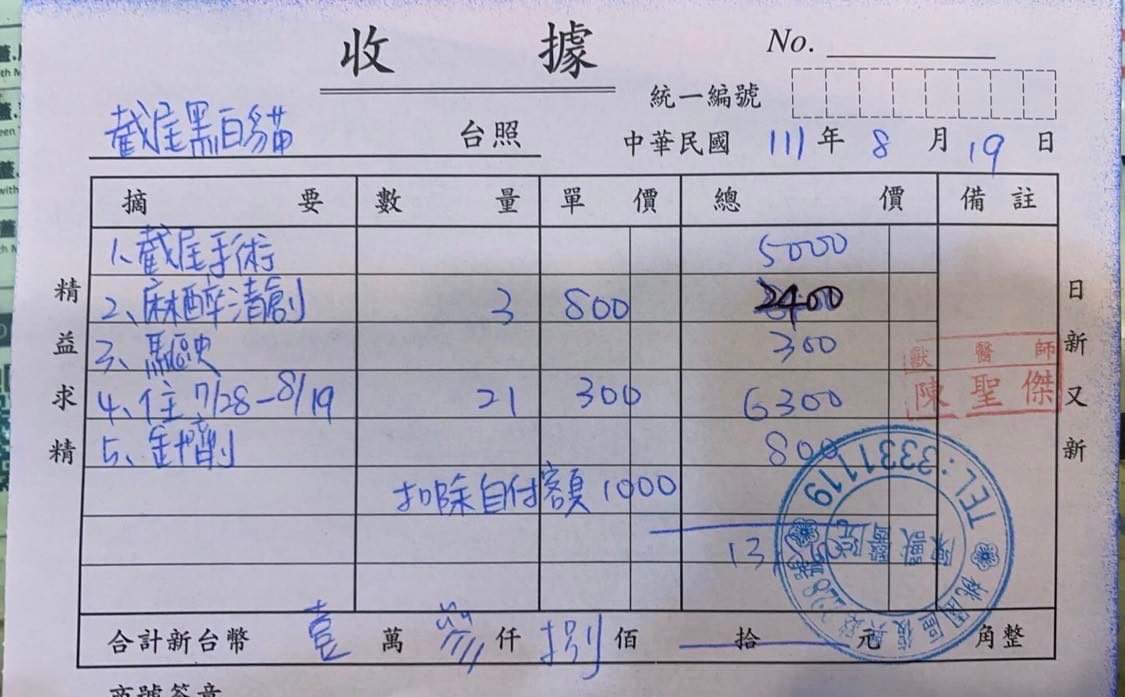 收 據
No.
統一編號
截尾黑白貓 台照
中華民國 111 年 8 月 19 日
摘 要 數 量 單 價 總 價 備 註
1、截尾手術 5000
2、麻醉清創 3 800 2400
3、驅虫 300
4、住 7/28-8/19 21 300 6300
5、針劑 800
扣除自付額 1000
精益求精
日新又新
獸醫師
陳聖傑
TEL: 3331119
陳獸醫院
合計新台幣 壹 萬 仟 捌 佰 拾 元 角整